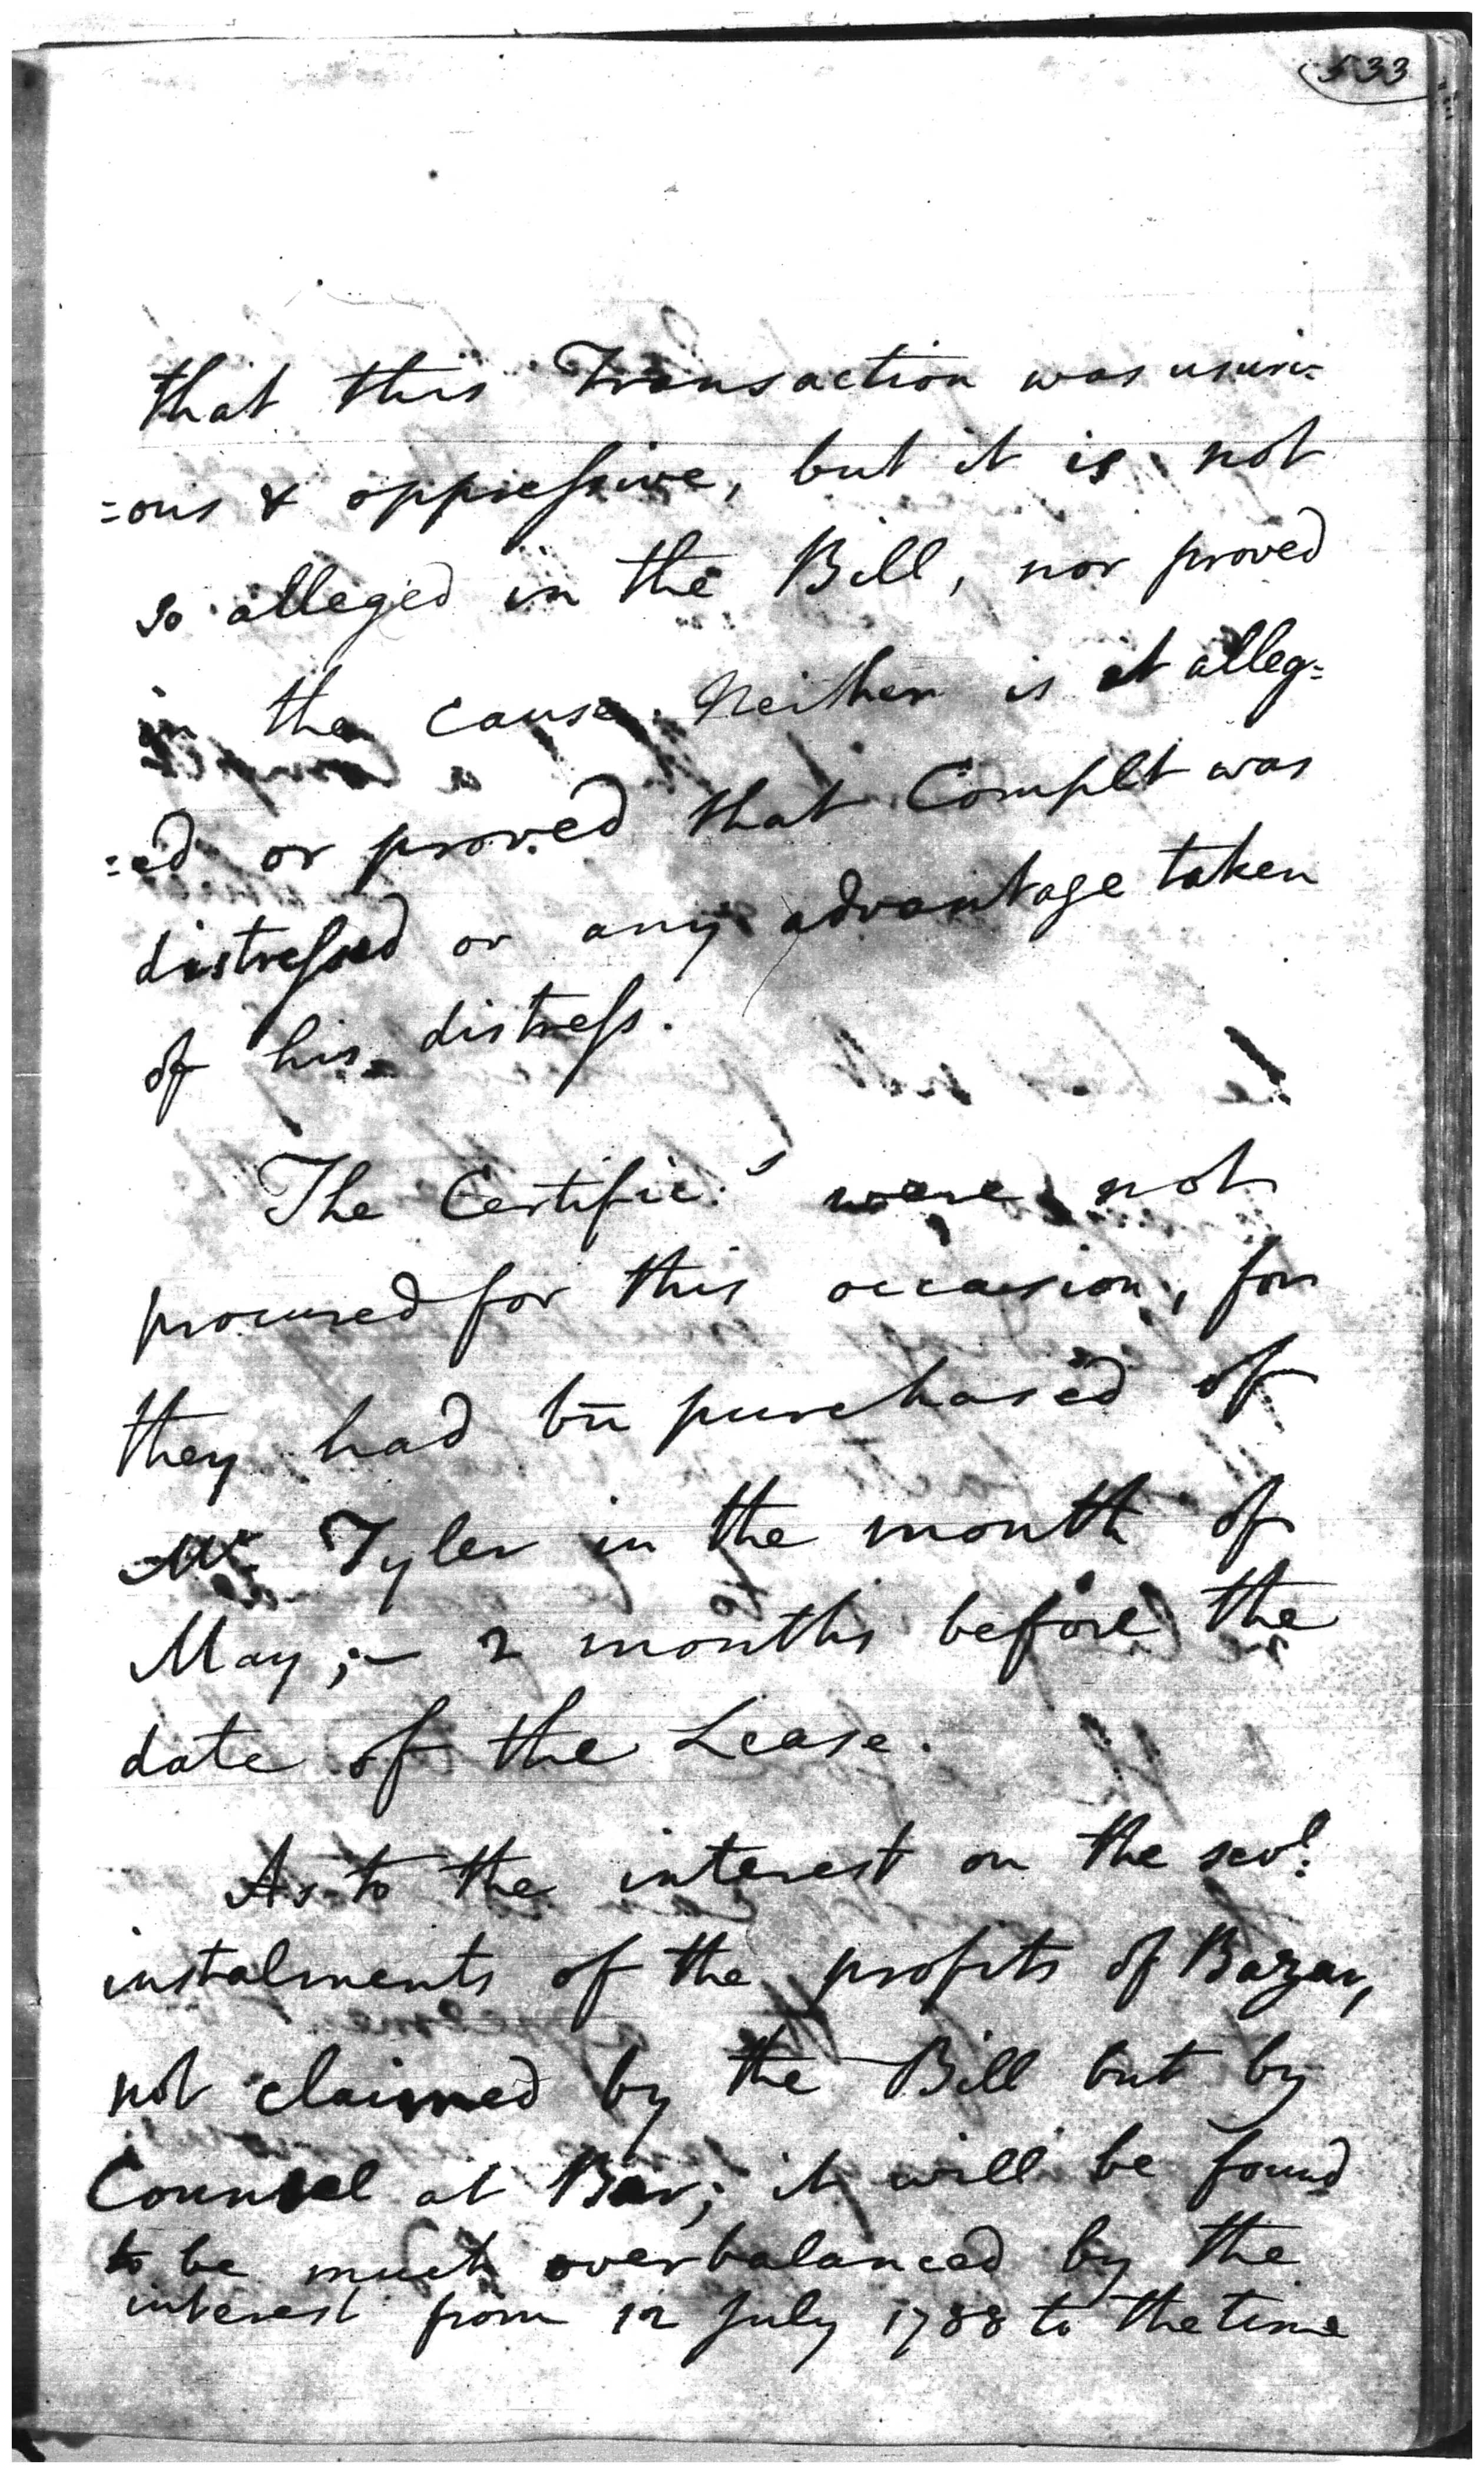 533
that this Transaction was usuri=
=ous & oppressive, but it is not
so alleged in the Bill, nor proved
in the cause. Neither is it alleg=
=ed or proved that Complt was
distressed or any advantage taken
of his distress.
The Certific.s were not
procured for this occasion, for
they had bn̄ purchased of
Mr Tyler in the month of
May;- 2 months before the
date of the Lease.
As to the interest on the sevl.
instalments of the profits of Bazar,
not claimed by the Bill but by
Counsel at Bar; it will be found
to be much overbalanced by the
interest from 12 July 1788 to the time